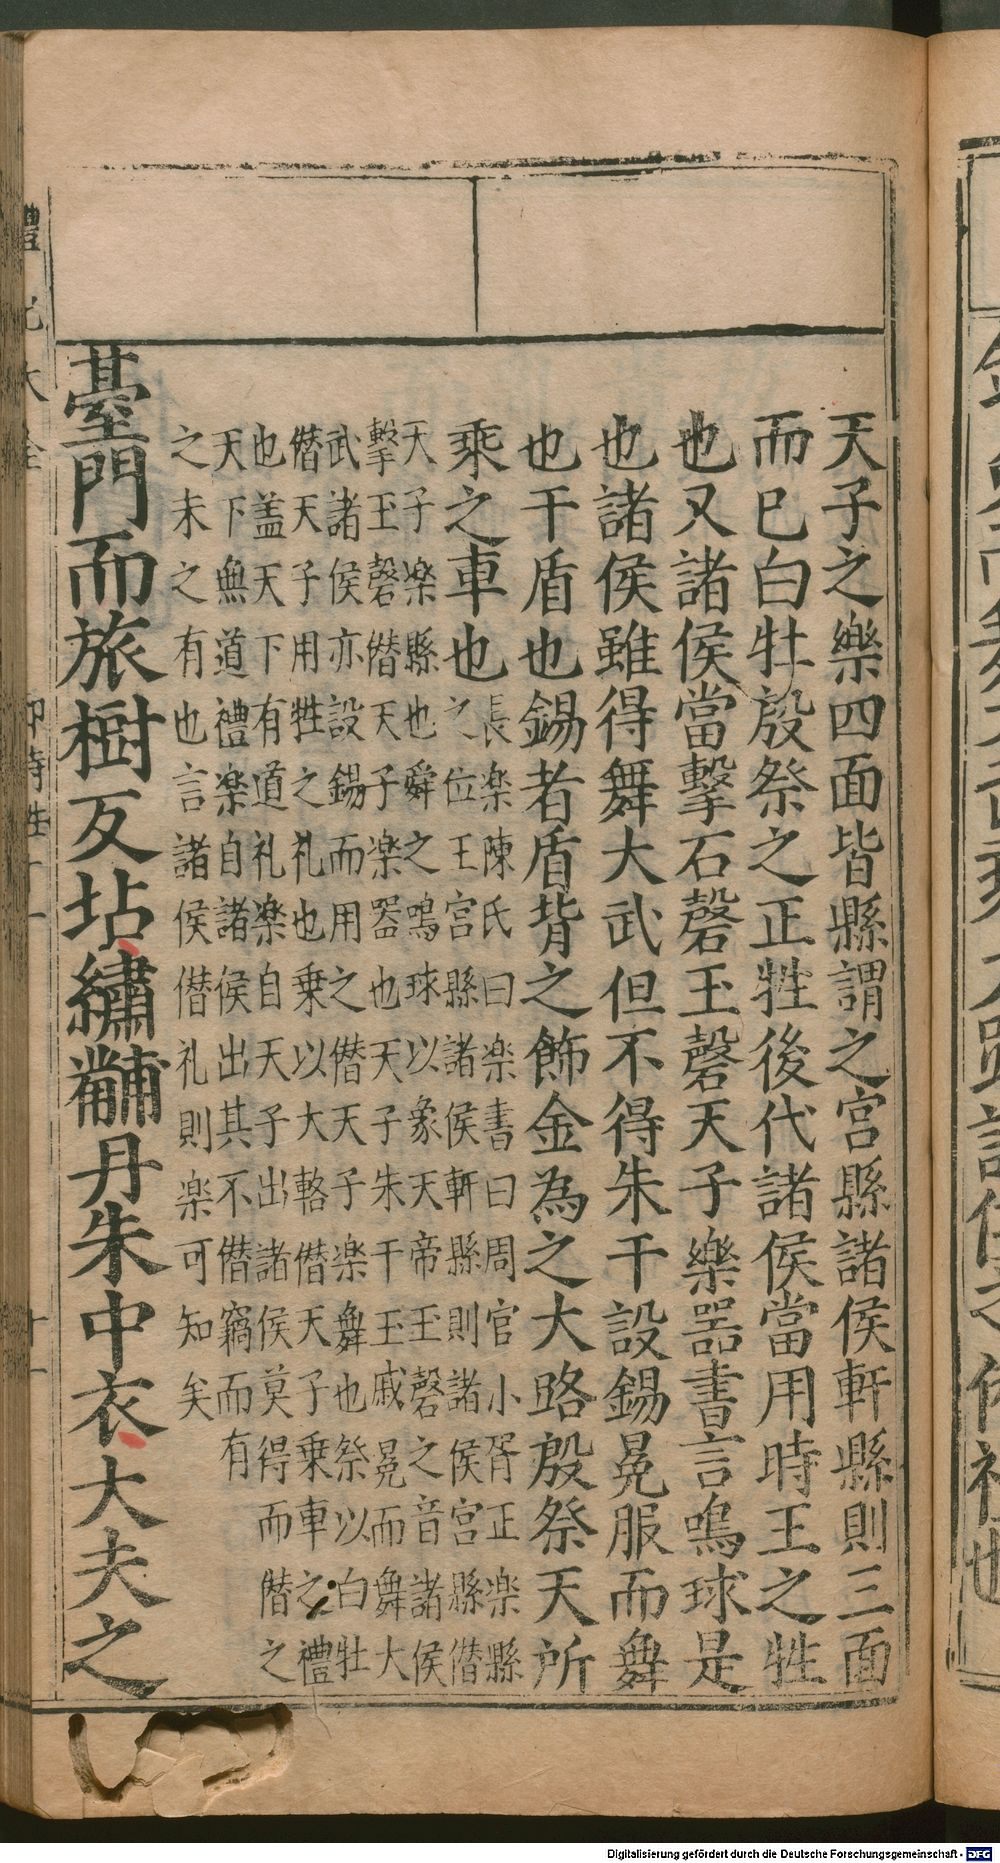 天子之樂四面皆縣謂之宮縣諸侯軒縣則三面
而已白牡殷祭之正牲後代諸侯當用時王之牲
也又諸侯當擊石磬玉磬天子樂器書言鳴球是
也諸侯雖得舞大武但不得朱干設錫冕服而舞
也干盾也錫者盾背之飾金為之大路殷祭天所
乘之車也
長楽陳氏曰楽書曰周官小胥正楽縣
之位王宮縣諸侯軒縣則諸侯宮縣僣
天子楽縣也舜之鳴球以象天帝玉磬之音諸侯
擊玉磬僣天子楽器也天子朱干玉戚冕而舞大
武諸侯亦設錫而用之僣天子楽舞也祭以白牡
僣天子用牲之礼也乗以大輅僣天子乗車之禮
也盖天下有道礼楽自天子出諸侯莫得而僣之
天下無道禮楽自諸侯出其不僣竊而有
之未之有也言諸侯僣礼則楽可知矣
臺門而旅樹反坫繡黼丹朱中衣大夫之
禮記大全
郊特牲十一
十一
Digitalisierung gefördert durch die Deutsche Forschungsgemeinschaft - DFG